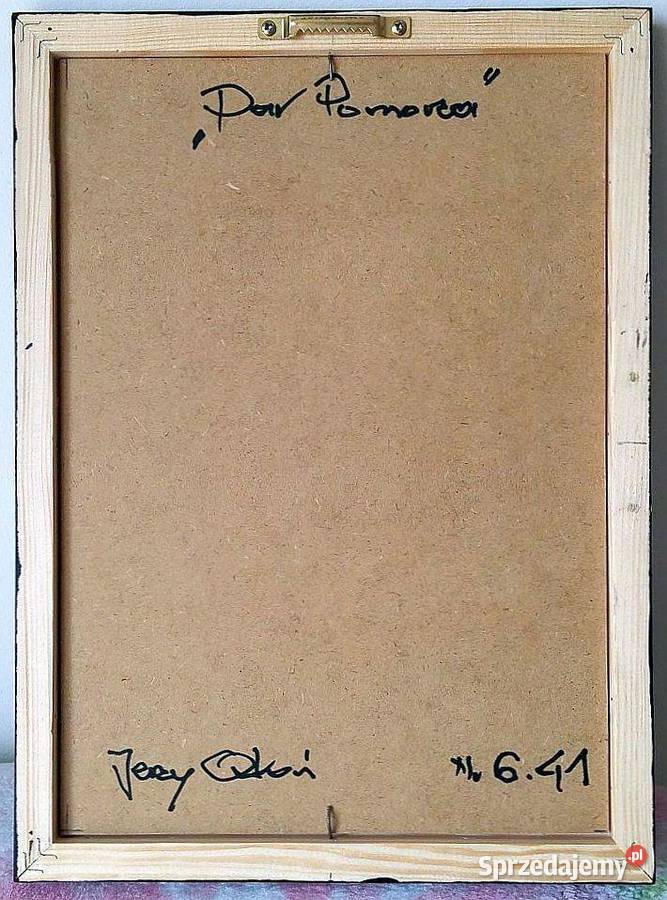 „Par Pomorza”
Jerzy Okoń
6.41
Sprzedajemy.pl